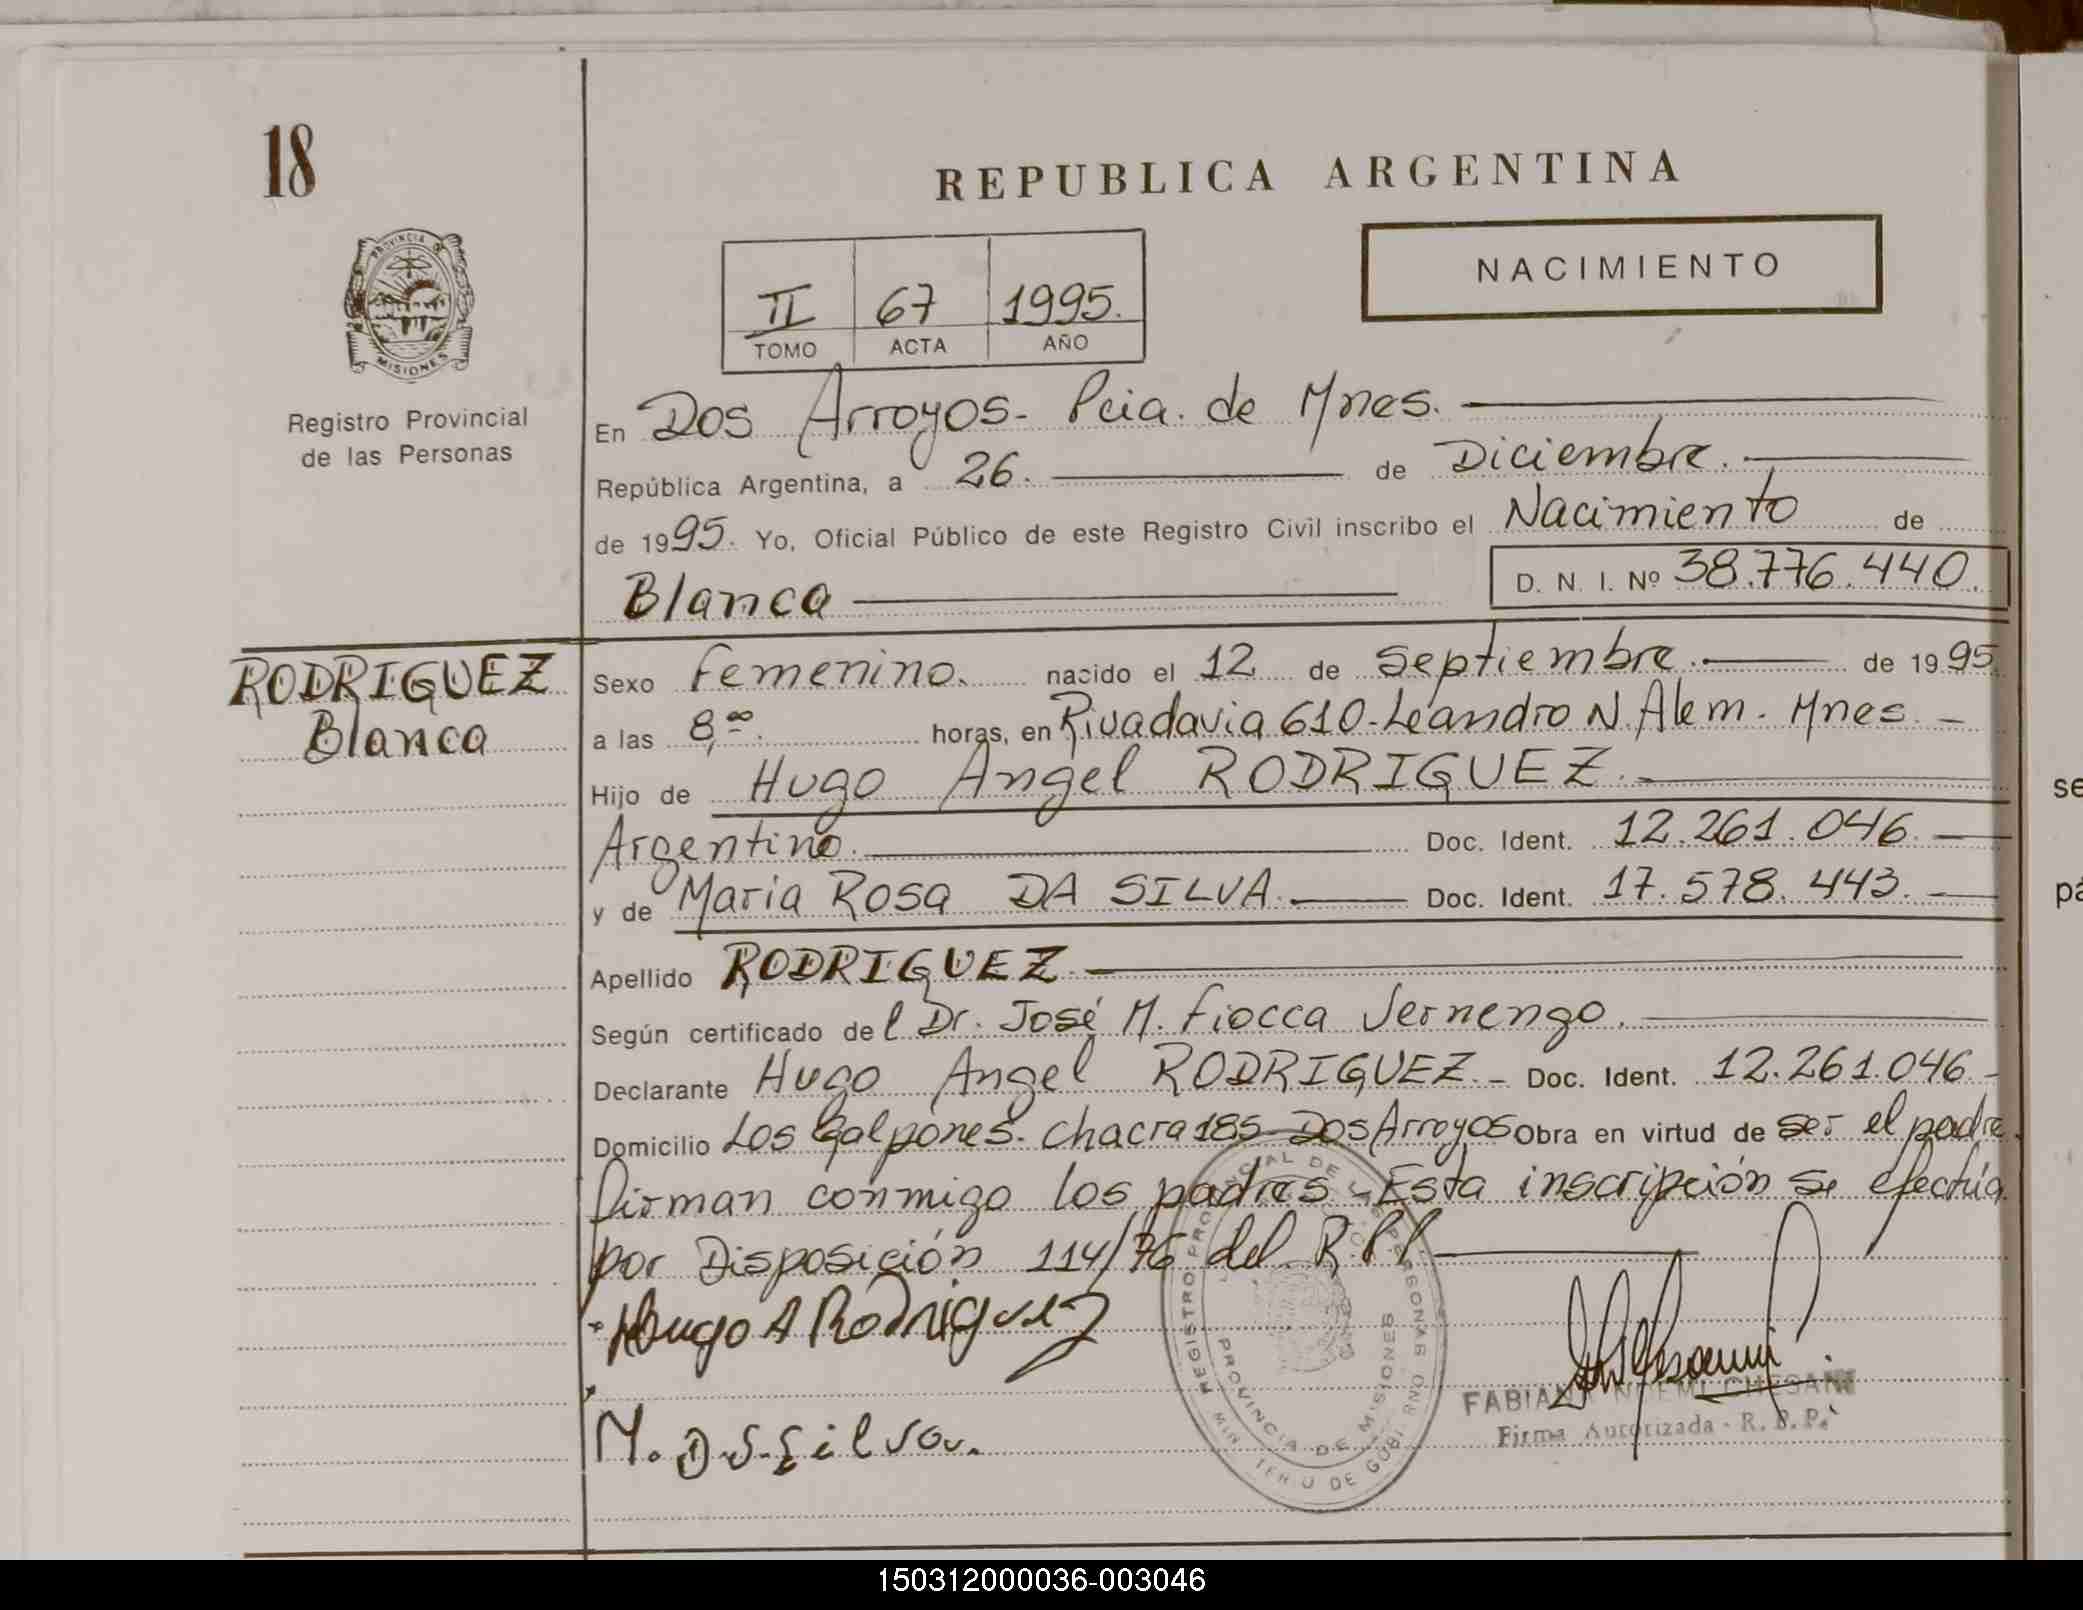 18
REPUBLICA ARGENTINA
NACIMIENTO
PROVINCIA DE
MISIONES
II 67 1995.
TOMO ACTA AÑO
Registro Provincial
de las Personas
En Dos Arroyos- Pcia. de Mnes.
República Argentina, a 26. de Diciembre.
de 1995. Yo, Oficial Público de este Registro Civil inscribo el Nacimiento de
Blanca D. N. I. Nº 38.776.440.
RODRIGUEZ
Blanca
Sexo Femenino. nacido el 12 de Septiembre. de 1995
a las 8,00. horas, en Rivadavia 610-Leandro N. Alem. Mnes. -
Hijo de Hugo Angel RODRIGUEZ.
Argentino. Doc. Ident. 12.261.046.
y de Maria Rosa DA SILVA. Doc. Ident. 17.578.443.
Apellido RODRIGUEZ.
Según certificado del Dr. José M. Fiocca Vernengo.
Declarante Hugo Angel RODRIGUEZ.- Doc. Ident. 12.261.046.-
Domicilio Los Galpones. Chacra 185 Dos Arroyos Obra en virtud de ser el padre.
firman conmigo los padres. Esta inscripción se efectúa
por Disposición 114/76 del R.P.P.
Hugo A Rodriguez
M. D. S. Silva.
REGISTRO PROVINCIAL DE LAS PERSONAS
PROVINCIA DE MISIONES
FABIANA NOEMI CHESANI
Firma Autorizada - R. P. P.
se
pá
150312000036-003046